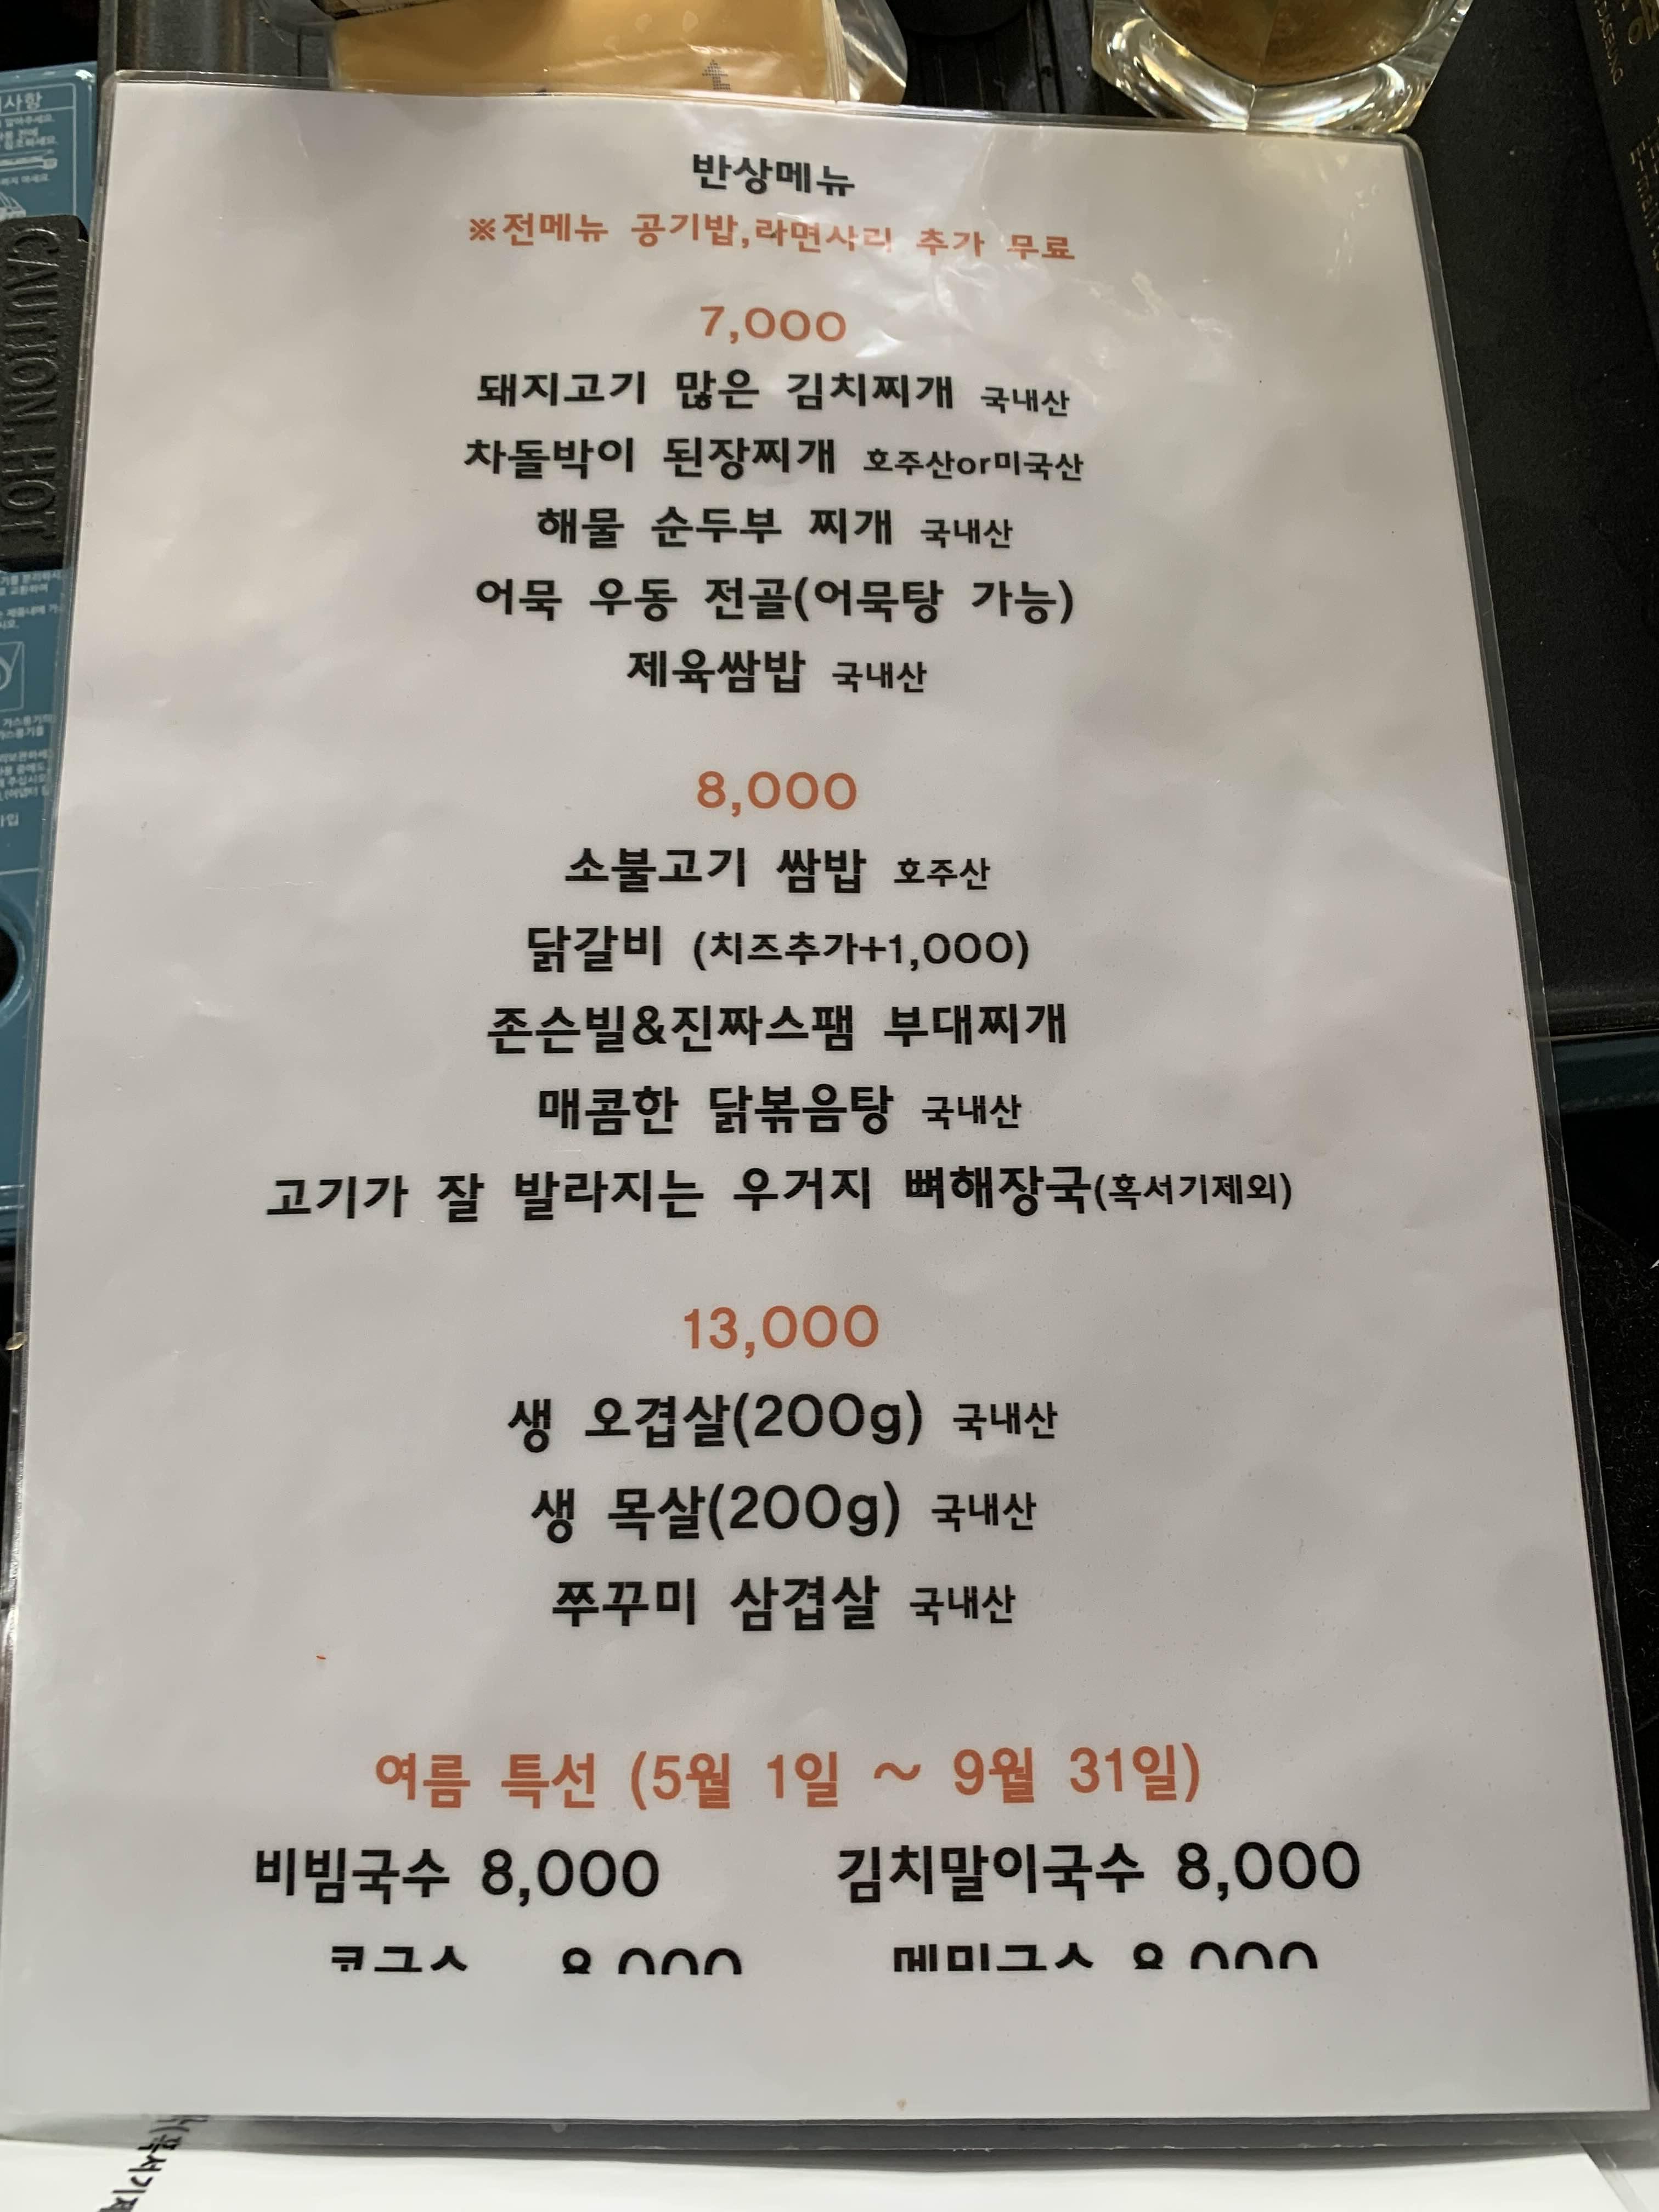 반상메뉴
※전메뉴 공기밥,라면사리 추가 무료
7,000
돼지고기 많은 김치찌개 국내산
차돌박이 된장찌개 호주산or미국산
해물 순두부 찌개 국내산
어묵 우동 전골(어묵탕 가능)
제육쌈밥 국내산
8,000
소불고기 쌈밥 호주산
닭갈비 (치즈추가+1,000)
존슨빌&진짜스팸 부대찌개
매콤한 닭볶음탕 국내산
고기가 잘 발라지는 우거지 뼈해장국(혹서기제외)
13,000
생 오겹살(200g) 국내산
생 목살(200g) 국내산
쭈꾸미 삼겹살 국내산
여름 특선 (5월 1일 ~ 9월 31일)
비빔국수 8,000 김치말이국수 8,000
CAUTION.HOT